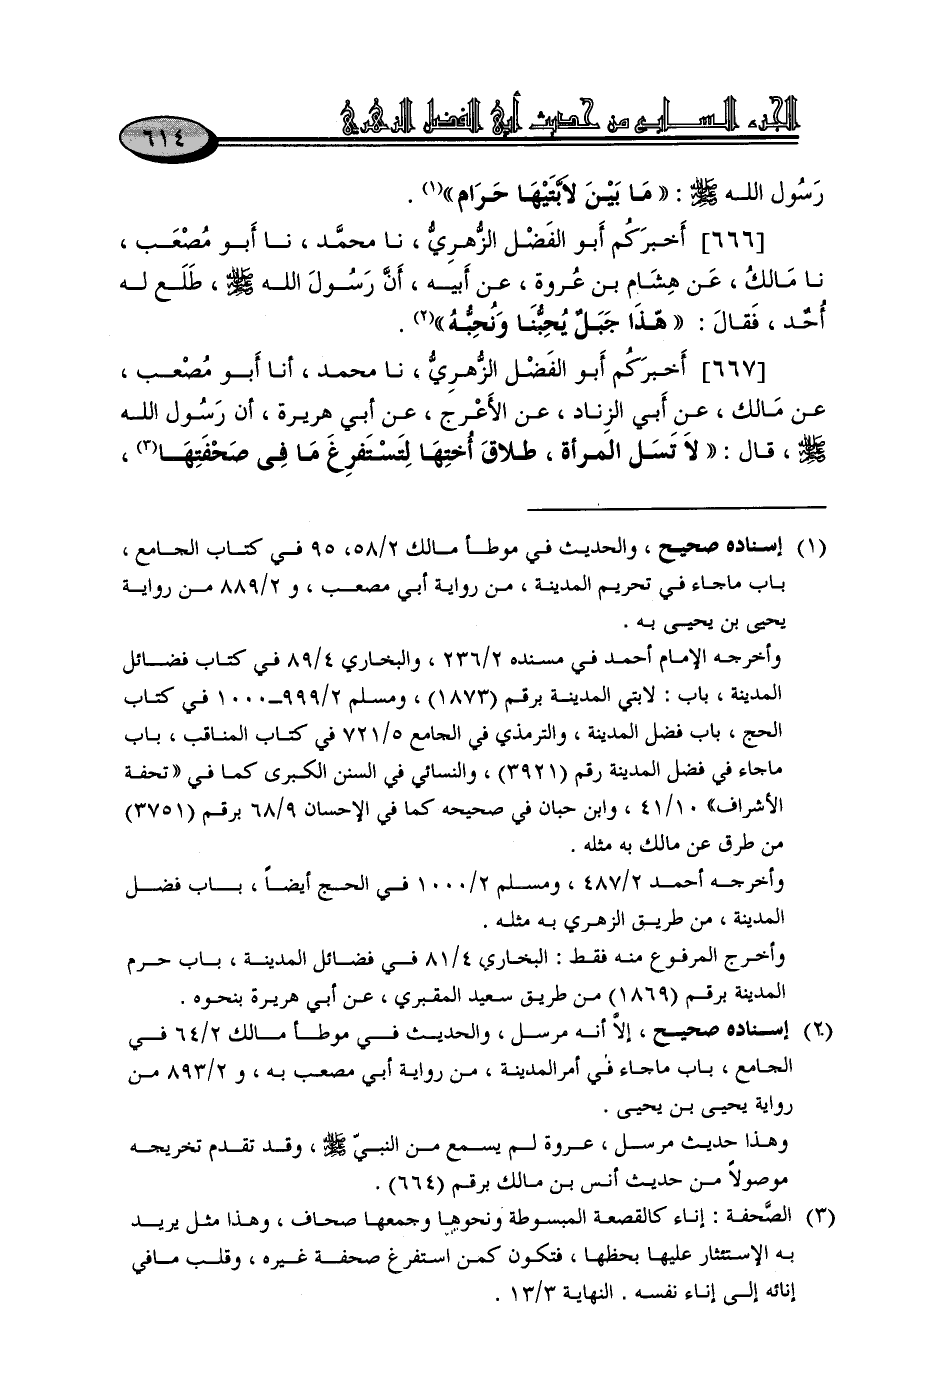 الجزء السابع من حديث أبي الفضل الزهري
٦١٤
رَسُول اللـه ﷺ : « مَا بَيْنَ لاَبَتَيْهَا حَرَام »(١) .
[٦٦٦] أَخبرَكُم أبو الفَضْل الزُّهريُّ ، نا محمَّد ، نـا أَبـو مُصْعَب ،
نا مَالكُ ، عَن هِشَام بن عُروة ، عن أَبيه ، أَنَّ رَسُول الله ﷺ ، طَلَع له
أُحُد ، فَقالَ : « هَذَا جَبَلٌ يُحِبُّنَا وَنُحِبُّهُ »(٢) .
[٦٦٧] أَخبرَكُم أَبو الفَضْل الزُّهريُّ ، نا محمد ، أنا أَبـو مُصْعب ،
عن مَالك ، عن أَبي الزناد ، عن الأَعْرج ، عن أبي هريرة ، أن رَسُول الله
ﷺ ، قال : « لاَ تَسَل المرأة ، طلاقَ أُختِهَا لِتَسْتَفرِغَ مَا فِى صَحْفَتِهَـا(٣) ،
(١) إسناده صحيح ، والحديث في موطأ مالك ٥٨/٢، ٩٥ في كتاب الجامع ،
باب ماجاء في تحريم المدينة ، من رواية أبي مصعب ، و ٨٨٩/٢ من رواية
يحيى بن يحيى به .
وأخرجه الإمام أحمد في مسنده ٢٣٦/٢ ، والبخاري ٨٩/٤ في كتاب فضائل
المدينة ، باب : لابتي المدينة برقم (١٨٧٣) ، ومسلم ٩٩٩/٢ـ١٠٠٠ في كتاب
الحج ، باب فضل المدينة ، والترمذي في الجامع ٧٢١/٥ في كتاب المناقب ، باب
ماجاء في فضل المدينة رقم (٣٩٢١) ، والنسائي في السنن الكبرى كما في « تحفة
الأشراف» ٤١/١٠ ، وابن حبان في صحيحه كما في الإحسان ٦٨/٩ برقم (٣٧٥١)
من طرق عن مالك به مثله .
وأخرجه أحمد ٤٨٧/٢ ، ومسلم ١٠٠٠/٢ في الحج أيضاً ، باب فضل
المدينة ، من طريق الزهري به مثله .
وأخرج المرفوع منه فقط : البخاري ٨١/٤ في فضائل المدينة ، باب حرم
المدينة برقم (١٨٦٩) من طريق سعيد المقبري ، عن أبي هريرة بنحوه .
(٢) إسناده صحيح ، إلاَّ أنه مرسل ، والحديث في موطأ مالك ٦٤/٢ في
الجامع ، باب ماجاء في أمرالمدينة ، من رواية أبي مصعب به ، و ٨٩٣/٢ من
رواية يحيى بن يحيى .
وهذا حديث مرسل ، عروة لم يسمع من النبيّ ﷺ ، وقد تقدم تخريجه
موصولاً من حديث أنس بن مالك برقم (٦٦٤) .
(٣) الصَّحفة : إناء كالقصعة المبسوطة ونحوها وجمعها صحاف ، وهذا مثل يريد
به الإستئثار عليها بحظها ، فتكون كمن استفرغ صحفة غيره ، وقلب مافي
إنائه إلى إناء نفسه . النهاية ١٣/٣ .